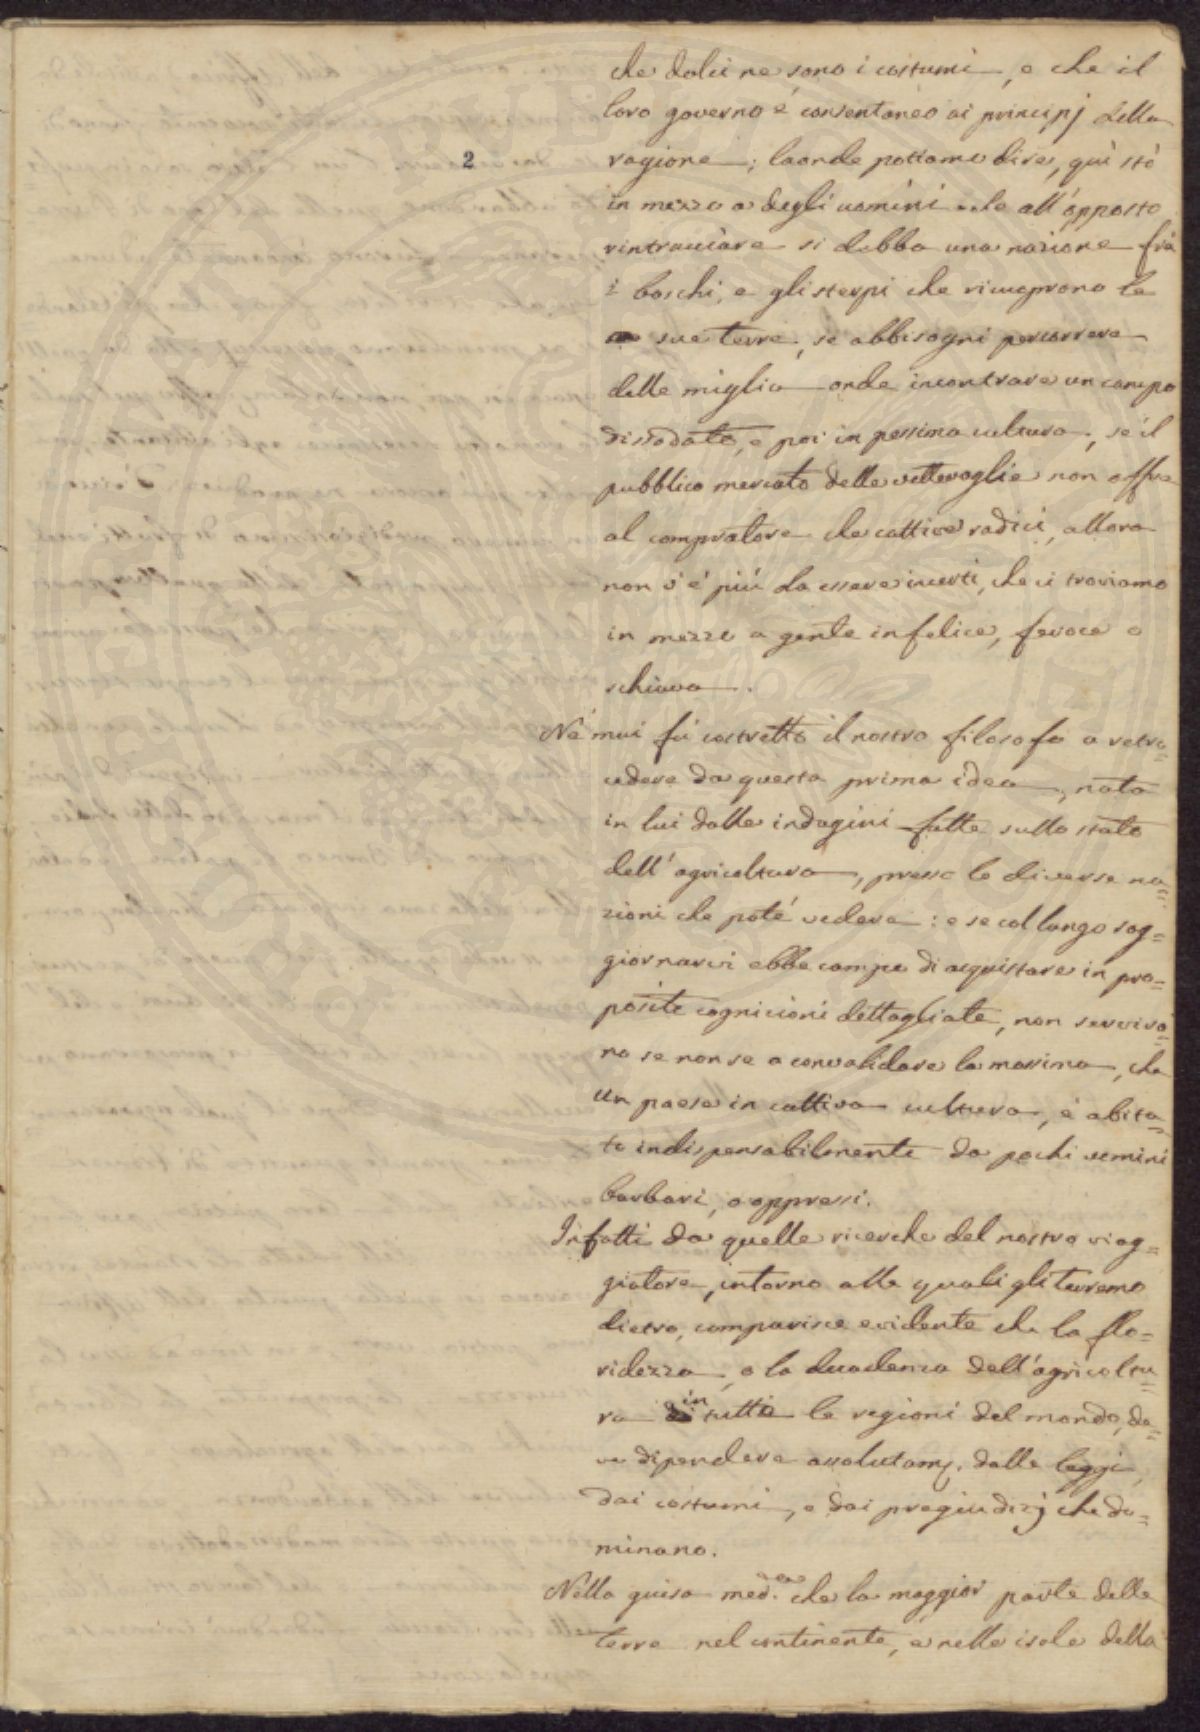 che dolci ne sono i costumi, e che il
loro governo é consentaneo ai principj della
ragione; laonde possiamo dire, quì stò
2
in mezzo a degli uomini all'opposto
rintracciare si debba una nazione frà
i boschi, e gli sterpi che ricuoprono le
sue terre, se abbisogni percorrere
delle miglia onde incontrare un campo
dissodato, e poi in pessima cultura, se il
pubblico mercato delle vettovaglie non offre
al compratore che cattive radici, allora
non v'é più da essere incerti, che ci troviamo
in mezzo a gente infelice, feroce o
schiava.
Né mai fù costretto il nostro filosofo a retro=
cedere da questa prima idea, nata
in lui dalle indagini fatte sullo stato
dell'agricoltura, presso le diverse na=
zioni che poté vedere: e se col lungo sog=
giornarvi ebbe campo di acquistare in pro=
posito cognizioni dettagliate, non serviro=
no se non se a convalidare la massima, che
un paese in cattiva cultura, é abita=
to indispensabilmente da pochi uomini
barbari, o oppressi.
Infatti da quelle ricerche del nostro viag=
giatore, intorno alle quali gli terremo
dietro, comparisce evidente che la flo=
ridezza, o la decadenza dell'agricoltu=
ra in tutte le regioni del mondo, de=
ve dipendere assolutam. dalle leggi,
dai costumi, e dai pregiudizj che do=
minano.
Nella guisa med.a che la maggior parte delle
terre nel continente, e nelle isole della